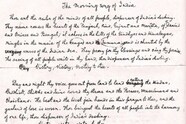 The Morning song of India
Thou art the ruler of the minds of all people, dispenser of India's destiny.
Thy name rouses the hearts of the Punjab, Sind, Gujrat and Maratha, of Dravid
and Orissa and Bengal; it echoes in the hills of the Vindhyas and Himalayas,
mingles in the music of Jumna and Ganges and is chanted by the
waves of the Indian Sea. They pray for thy blessings and sing thy praise,
the saving of all people waits in thy hand, thou dispenser of India's destiny.
Victory, Victory, Victory to thee.
Day and night thy voice goes out from land to land calling the Hindus,
Buddhists, Sikhs and Jains round thy throne and the Parsees, Musalmans and
Christians. The East and the West join hands in their prayer to thee, and the
garland of love is woven. Thou bringest the hearts of all people into the harmony
of one life, thou dispenser of India's destiny.